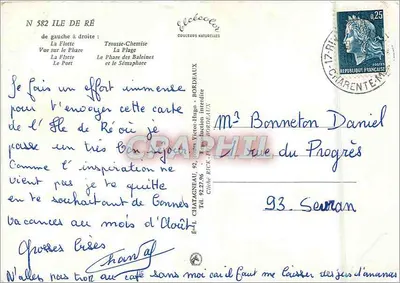 N 582 ILE DE RÉ
de gauche à droite :
La Flotte Trousse-Chemise
Vue sur le Phare La Plage
La Flotte Le Phare des Baleines
Le Port et le Sémaphore
Elcécolor
COULEURS NATURELLES
0,25
REPUBLIQUE FRANÇAISE
CHARENTE-M
Je fais un effort immense
pour t'envoyer cette carte
de l'Ile de Ré où je
passe un très bon séjour.
Comme l'inspiration ne
vient pas je te quitte
en te souhaitant de bonnes
vacances au mois d'Août
Grosses bises
Chantal
N'allez pas trop au café sans moi car il faut me laisser des jus d'ananas
CHATAGNEAU, 92, Victor-Hugo - BORDEAUX
Tél. 92.27.96 Reproduction interdite
Mr Bonneton Daniel
rue du Progrès
93. Sevran
CPAPHIL.COM